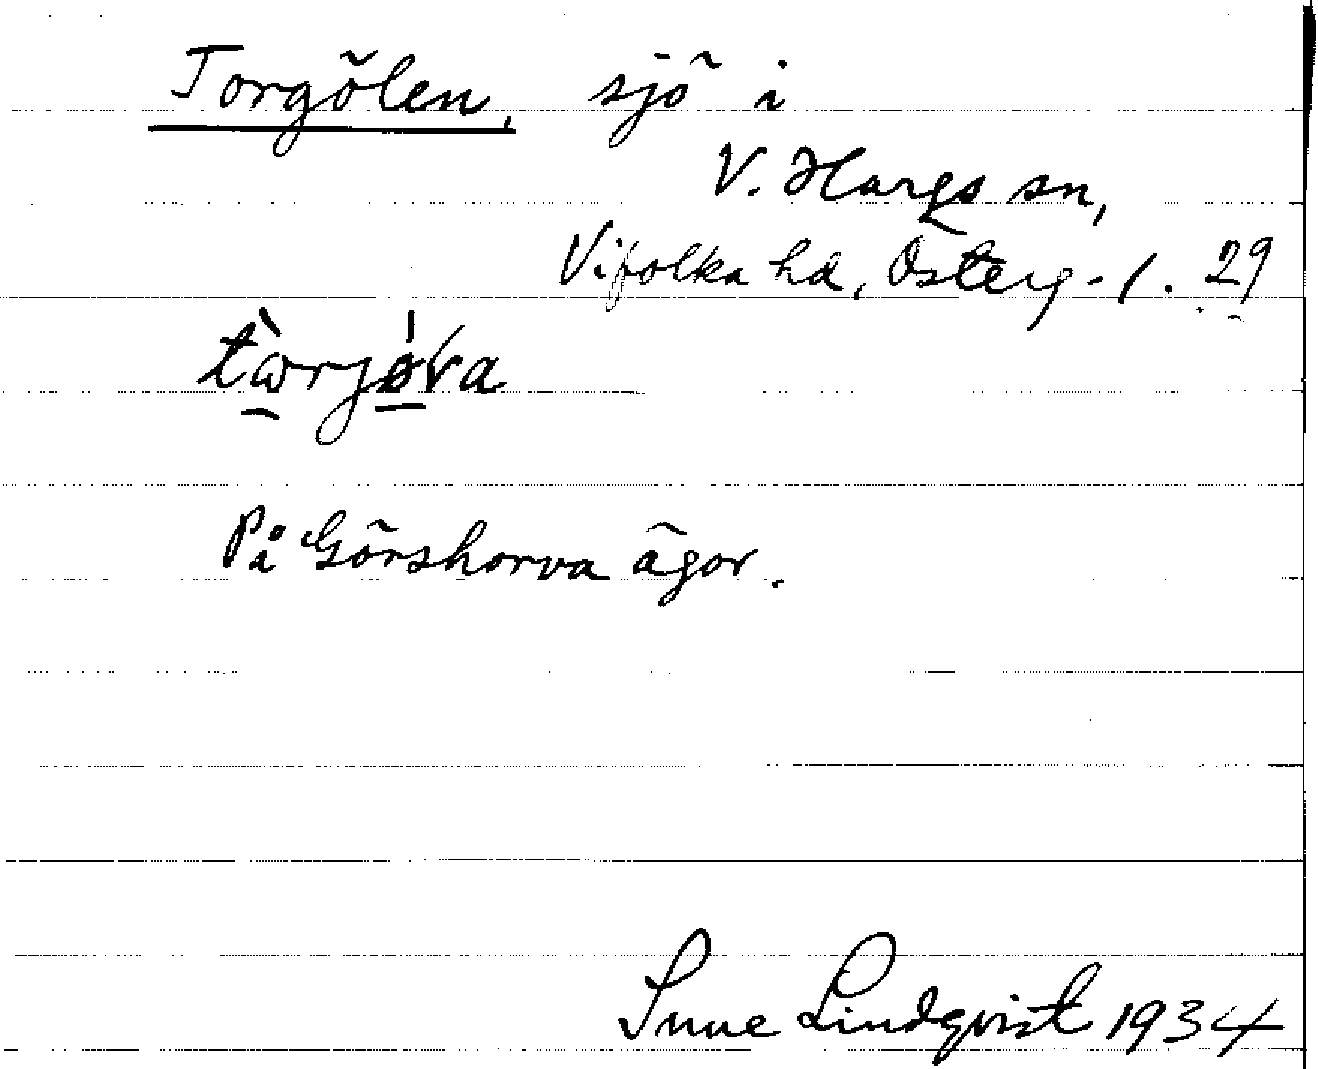 Torgölen, sjö i
V. Hargs sn,
Vifolka hd, Österg. l. 29
På Görshorva ägor.
Sune Lindqvist 1934